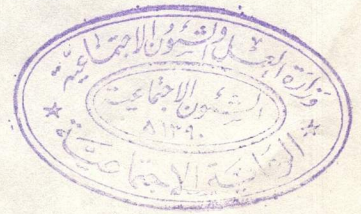 وزارة العمل والشئون الاجتماعية
الشئون الاجتماعية
الرعاية الاجتماعية